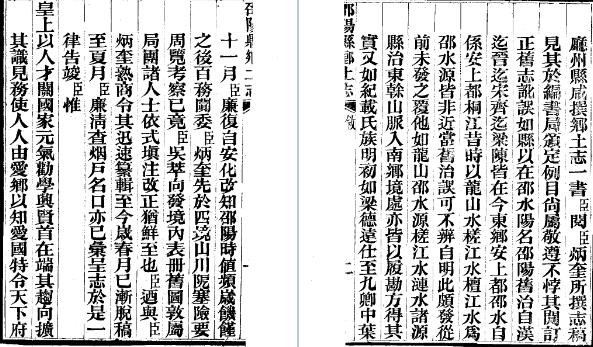 邵陽縣鄉土志
十一月臣廉復自安化改知邵陽時值頻歲饑饉
之後百務闐委臣炳奎先於四境山川阨塞險要
周覽考察已竟臣吳萃向發境內表冊舊圖敦屬
局團諸人士依式填注改正猶鮮至也廼與臣
炳奎熟商令其迅速纂輯至今歲春月已漸脫稿
至夏月臣廉清查烟戶名口亦已彙呈志於是一
律告竣臣惟
皇上以人才關國家元氣勸學興賢首在端其趨向擴
其識見務使人人由愛鄉以知愛國特令天下府
廳州縣咸撰鄉土志一書臣閔臣炳奎所撰志稿
見其於編書局頒定例目尚屬敬遵不悖其間訂
正舊志訛誤如縣以在邵水陽名邵陽舊治自漢
迄晉迄宋齊迄梁陳皆在今東鄉安上都邵水自
係安上都桐江昔時以龍山水槎江水檀江水為
邵水源皆非近當舊治誤可不辨自明此頗發從
前未發之覆他如龍山邵水源槎江水漣水諸源
縣治東幹山脈入南鄉境處亦皆以履勘方得其
實又如紀載氏族明初如梁德遠仕至九卿中葉
邵陽縣鄉土志 二